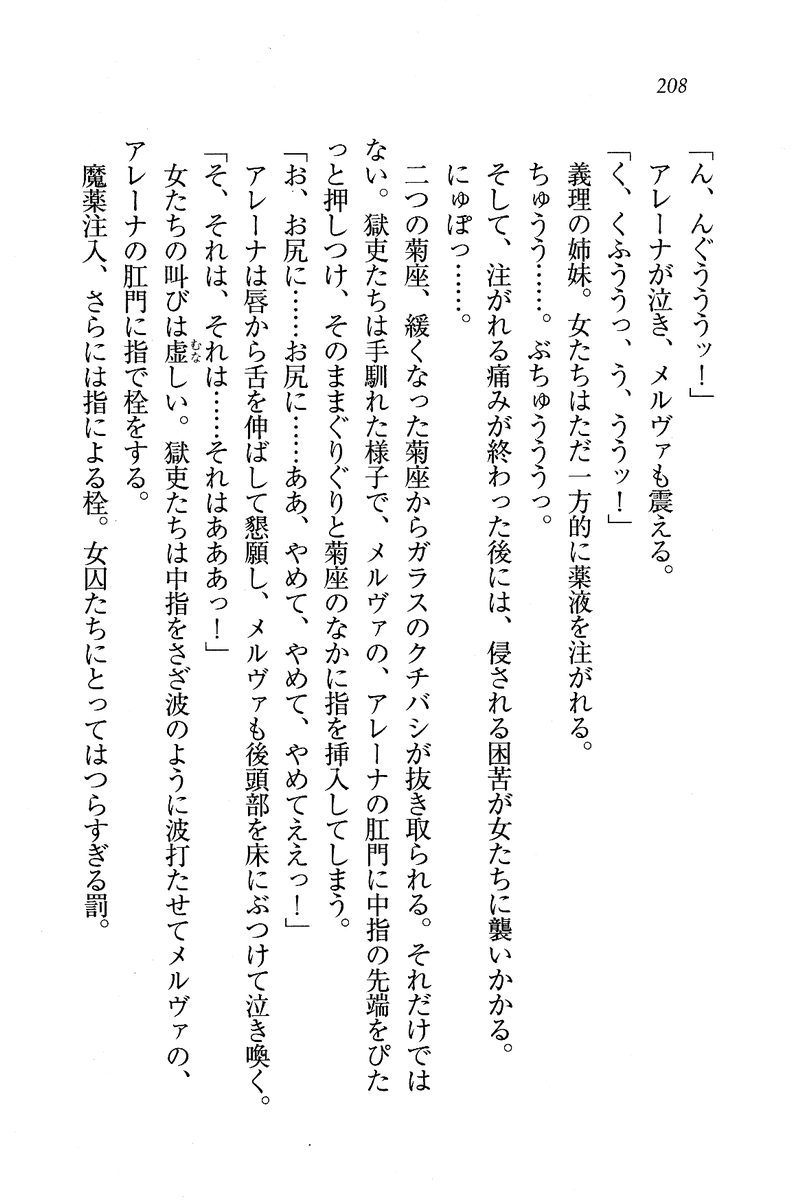 208
「ん、んぐうううッ！」
アレーナが泣き、メルヴァも震える。
「く、くふううっ、う、ううッ！」
義理の姉妹。女たちはただ一方的に薬液を注がれる。
ちゅうう……。ぶちゅうううっ。
そして、注がれる痛みが終わった後には、侵される困苦が女たちに襲いかかる。
にゅぽっ……。
二つの菊座、緩くなった菊座からガラスのクチバシが抜き取られる。それだけでは
ない。獄吏たちは手馴れた様子で、メルヴァの、アレーナの肛門に中指の先端をぴた
っと押しつけ、そのままぐりぐりと菊座のなかに指を挿入してしまう。
「お、お尻に……お尻に……ああ、やめて、やめて、やめてええっ！」
アレーナは唇から舌を伸ばして懇願し、メルヴァも後頭部を床にぶつけて泣き喚く。
「そ、それは、それは……それはあああっ！」
女たちの叫びは虚むなしい。獄吏たちは中指をさざ波のように波打たせてメルヴァの、
アレーナの肛門に指で栓をする。
魔薬注入、さらには指による栓。女囚たちにとってはつらすぎる罰。